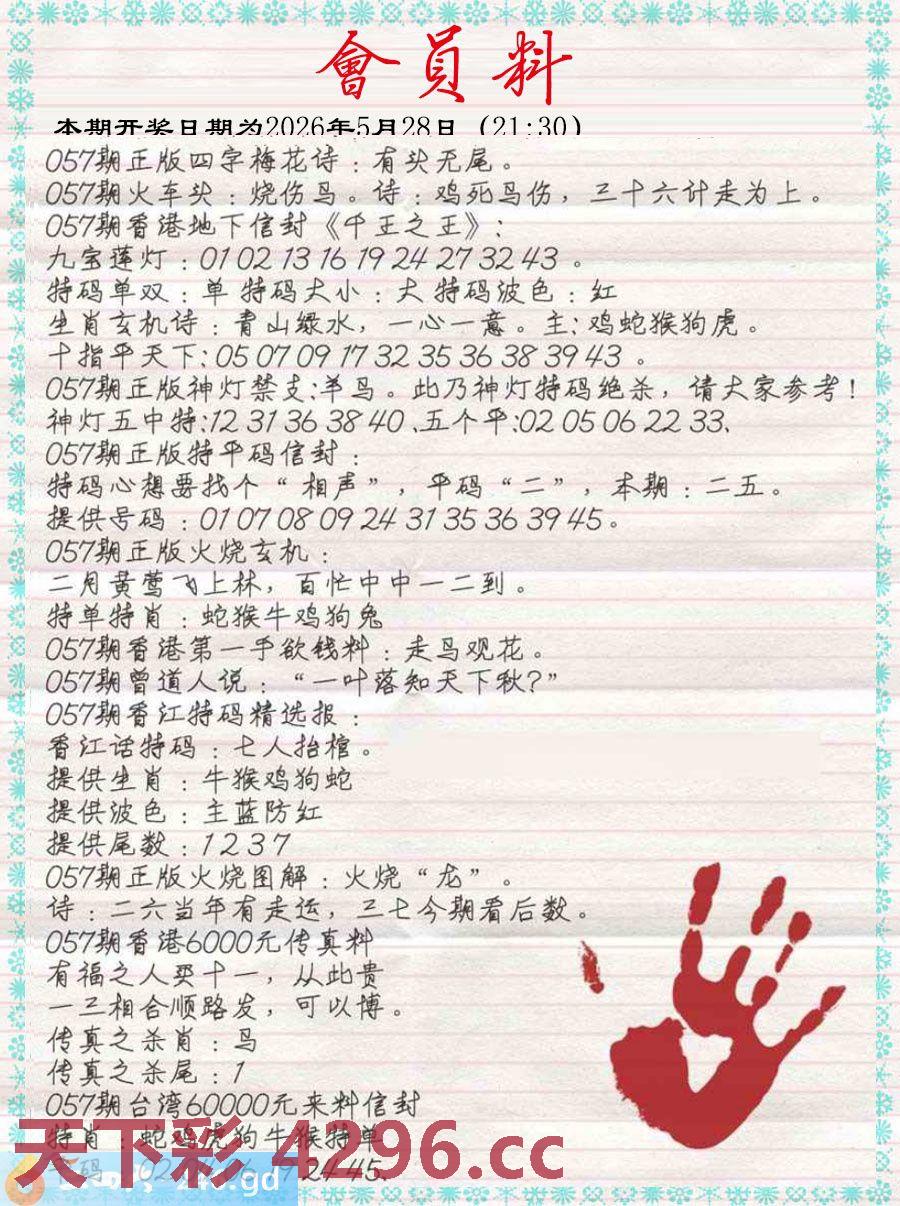 會員料
本期开奖日期为2026年5月28日（21:30）
057期正版四字梅花诗：有头无尾。
057期火车头：烧伤鸟。诗：鸡死鸟伤，三十六计走为上。
057期香港地下信封《千王之王》：
九宝莲灯：01 02 13 16 19 24 27 32 43 。
特码单双：单 特码大小：大 特码波色：红
生肖玄机诗：青山绿水，一心一意。主：鸡蛇猴狗虎。
十指平天下：05 07 09 17 32 35 36 38 39 43 。
057期正版神灯禁支：羊马。此乃神灯特码绝杀，请大家参考！
神灯五中特:12 31 36 38 40、五个平:02 05 06 22 33、
057期正版特平码信封：
特码心想要找个“相声”，平码“二”，本期：二五。
提供号码：01 07 08 09 24 31 35 36 39 45。
057期正版火烧玄机：
二月黄莺飞上林，百忙中中一二到。
特单特肖：蛇猴牛鸡狗兔
057期香港第一手欲钱料：走马观花。
057期曾道人说：“一叶落知天下秋?”
057期香江特码精选报：
香江话特码：七人抬棺。
提供生肖：牛猴鸡狗蛇
提供波色：主蓝防红
提供尾数：1 2 3 7
057期正版火烧图解：火烧“龙”。
诗：二六当年有走运，三七今期看后数。
057期香港6000元传真料
有福之人买十一，从此贵
一三相合顺路发，可以博。
传真之杀肖：马
传真之杀尾：1
057期台湾60000元来料信封
特肖：蛇鸡虎狗牛猴特单
天下彩 4296.cc
24 45、
.gd